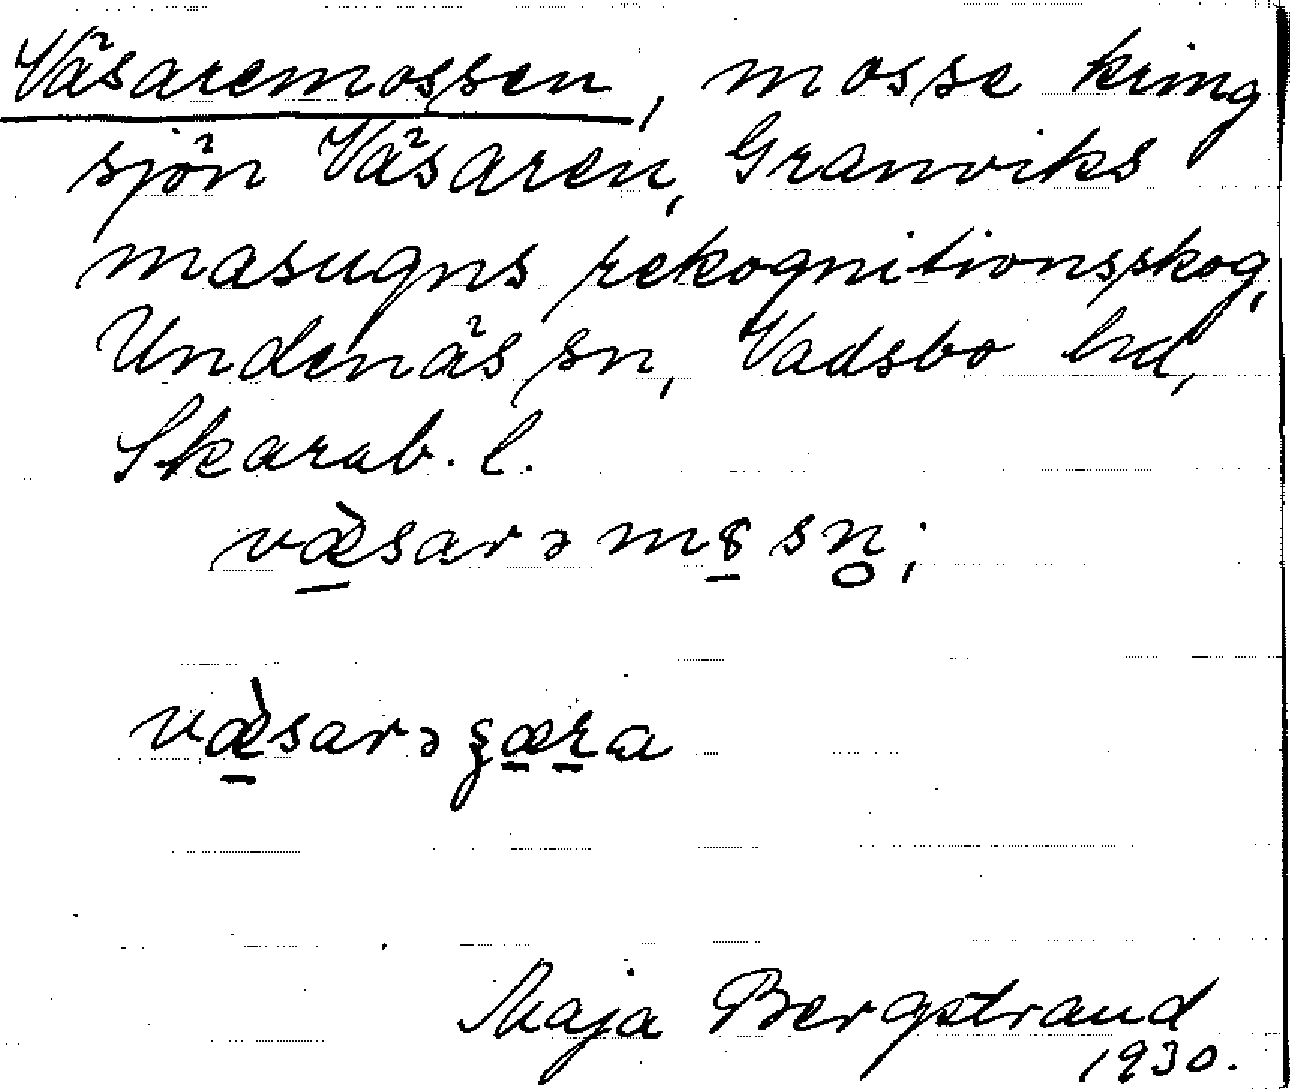 Väsaremossen, mosse kring
sjön Väsaren, Granviks
masugns rekognitionsskog,
Undenäs sn, Vadsbo hd,
Skarab. l.
væ̠̀sarəm8̠sn̥;
væ̠̀sarəʒæ̠r̠a
Maja Bergstrand
1930.